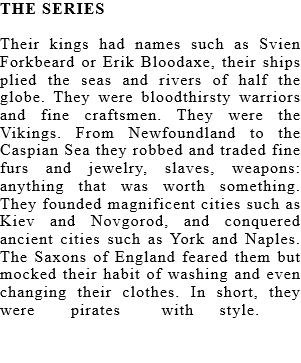 THE SERIES
Their kings had names such as Svien
Forkbeard or Erik Bloodaxe, their ships
plied the seas and rivers of half the
globe. They were bloodthirsty warriors
and fine craftsmen. They were the
Vikings. From Newfoundland to the
Caspian Sea they robbed and traded fine
furs and jewelry, slaves, weapons:
anything that was worth something.
They founded magnificent cities such as
Kiev and Novgorod, and conquered
ancient cities such as York and Naples.
The Saxons of England feared them but
mocked their habit of washing and even
changing their clothes. In short, they
were pirates with style.